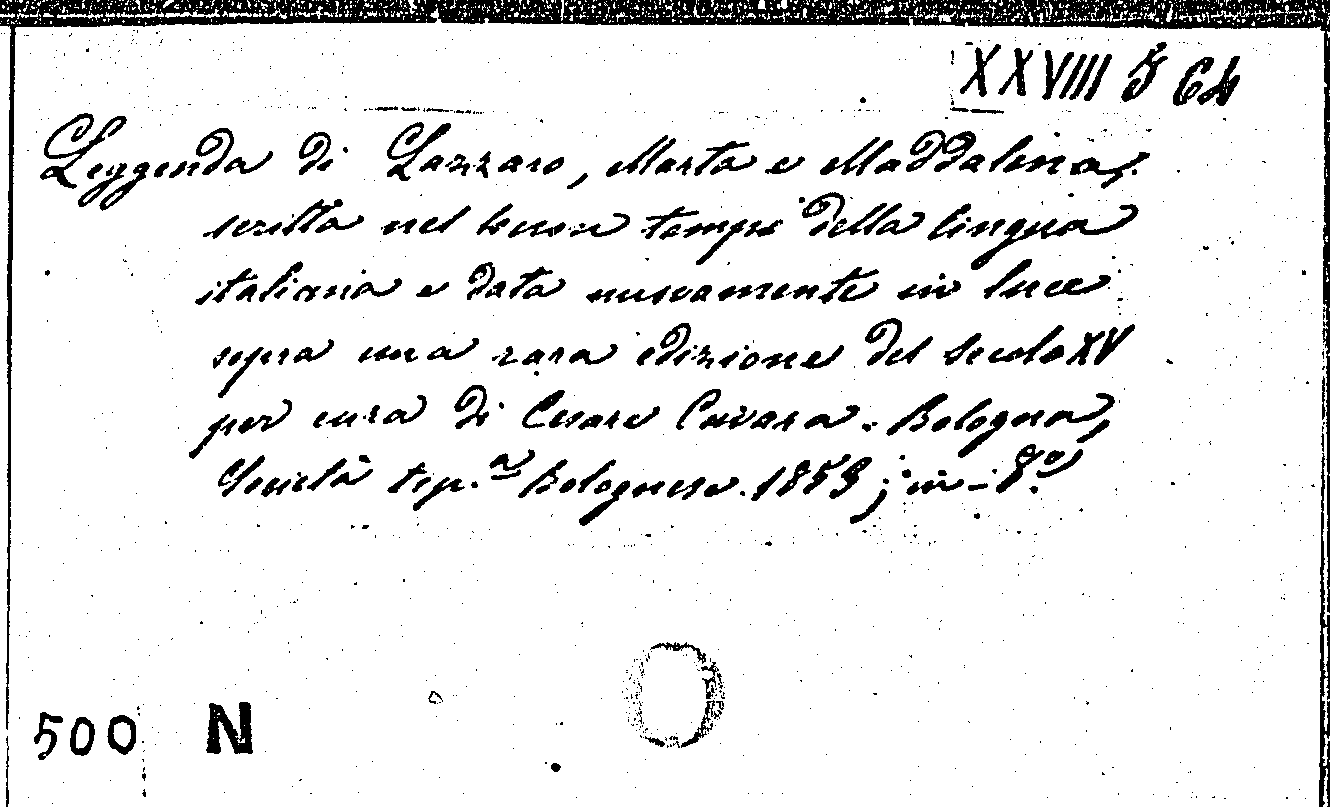 XXVIII J 64
Leggenda di Lazzaro, Marta e Maddalena,
scritta nel buon tempo della lingua
italiana e data nuovamente in luce
sopra una rara edizione del secolo XV
per cura di Cesare Cavara. Bologna,
Società tip.ª Bolognese. 1853; in-8º.
500 N